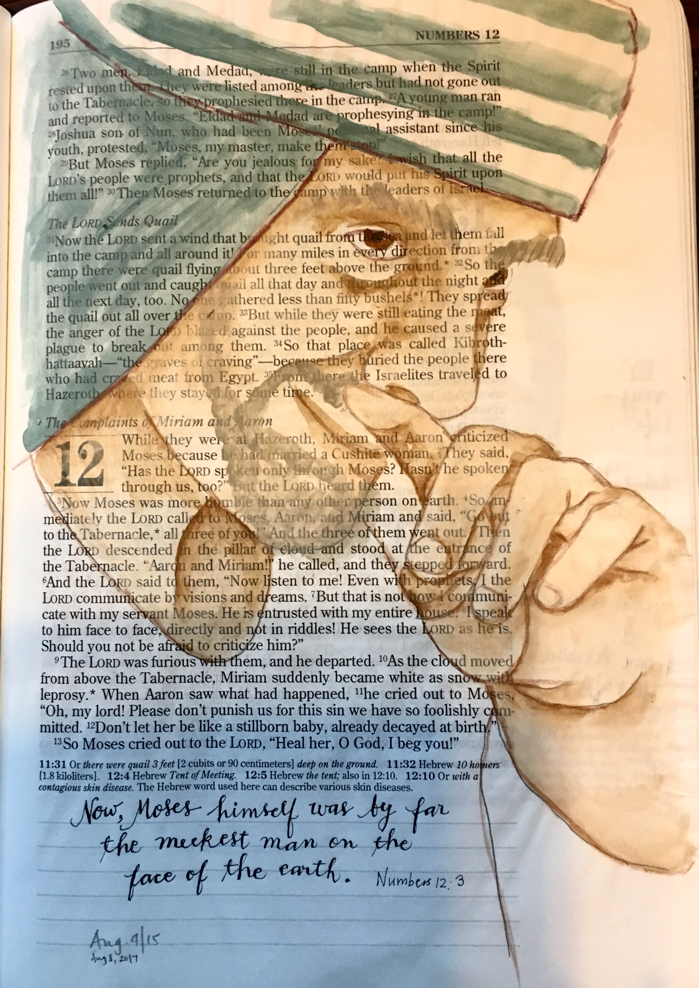 195
NUMBERS 12
²⁶Two men, Eldad and Medad, were still in the camp when the Spirit
rested upon them. They were listed among the leaders but had not gone out
to the Tabernacle, so they prophesied there in the camp. ²⁷A young man ran
and reported to Moses, “Eldad and Medad are prophesying in the camp!”
²⁸Joshua son of Nun, who had been Moses’ personal assistant since his
youth, protested, “Moses, my master, make them stop!”
²⁹But Moses replied, “Are you jealous for my sake? I wish that all the
LORD’s people were prophets, and that the LORD would put his Spirit upon
them all!” ³⁰Then Moses returned to the camp with the leaders of Israel.
The LORD Sends Quail
³¹Now the LORD sent a wind that brought quail from the sea and let them fall
into the camp and all around it! For many miles in every direction from the
camp there were quail flying about three feet above the ground.* ³²So the
people went out and caught quail all that day and throughout the night and
all the next day, too. No one gathered less than fifty bushels*! They spread
the quail out all over the camp. ³³But while they were still eating the meat,
the anger of the LORD blazed against the people, and he caused a severe
plague to break out among them. ³⁴So that place was called Kibroth-
hattaavah—“the graves of craving”—because they buried the people there
who had craved meat from Egypt. ³⁵From there the Israelites traveled to
Hazeroth, where they stayed for some time.
The Complaints of Miriam and Aaron
12 While they were at Hazeroth, Miriam and Aaron criticized
Moses because he had married a Cushite woman. They said,
“Has the LORD spoken only through Moses? Hasn’t he spoken
through us, too?” But the LORD heard them.
³Now Moses was more humble than any other person on earth. ⁴So im-
mediately the LORD called to Moses, Aaron, and Miriam and said, “Go out
to the Tabernacle,* all three of you!” And the three of them went out. ⁵Then
the LORD descended in the pillar of cloud and stood at the entrance of
the Tabernacle. “Aaron and Miriam!” he called, and they stepped forward.
⁶And the LORD said to them, “Now listen to me! Even with prophets, I the
LORD communicate by visions and dreams. ⁷But that is not how I communi-
cate with my servant Moses. He is entrusted with my entire house. ⁸I speak
to him face to face, directly and not in riddles! He sees the LORD as he is.
Should you not be afraid to criticize him?”
⁹The LORD was furious with them, and he departed. ¹⁰As the cloud moved
from above the Tabernacle, Miriam suddenly became white as snow with
leprosy.* When Aaron saw what had happened, ¹¹he cried out to Moses,
“Oh, my lord! Please don’t punish us for this sin we have so foolishly com-
mitted. ¹²Don’t let her be like a stillborn baby, already decayed at birth.”
¹³So Moses cried out to the LORD, “Heal her, O God, I beg you!”
11:31 Or there were quail 3 feet [2 cubits or 90 centimeters] deep on the ground. 11:32 Hebrew 10 homers
[1.8 kiloliters]. 12:4 Hebrew Tent of Meeting. 12:5 Hebrew the tent; also in 12:10. 12:10 Or with a
contagious skin disease. The Hebrew word used here can describe various skin diseases.
Now, Moses himself was by far
the meekest man on the
face of the earth. Numbers 12:3
Aug 9/15
Aug 8, 2017